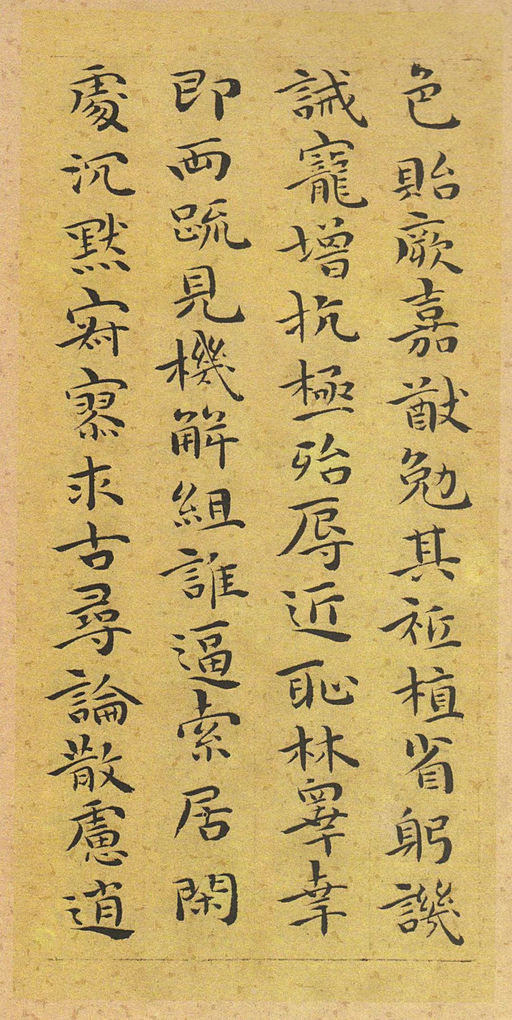 色貽厥嘉猷勉其祗植省躬譏
誡寵增抗極殆辱近恥林皋幸
即兩疏見機解組誰逼索居閑
處沉默寂寥求古尋論散慮逍